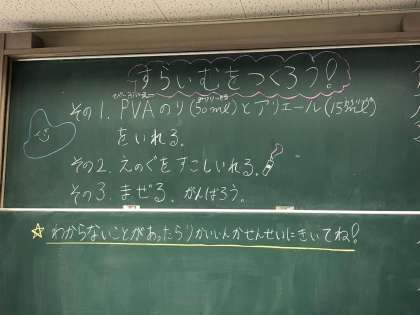 すらいむをつくろう!
その1. PVAのり(50ml)とアリエール(15ml)
をいれる。
その2. えのぐをすこしいれる。
その3. まぜる。がんばろう。
☆わからないことがあったらりかいいんかせんせいにきいてね!